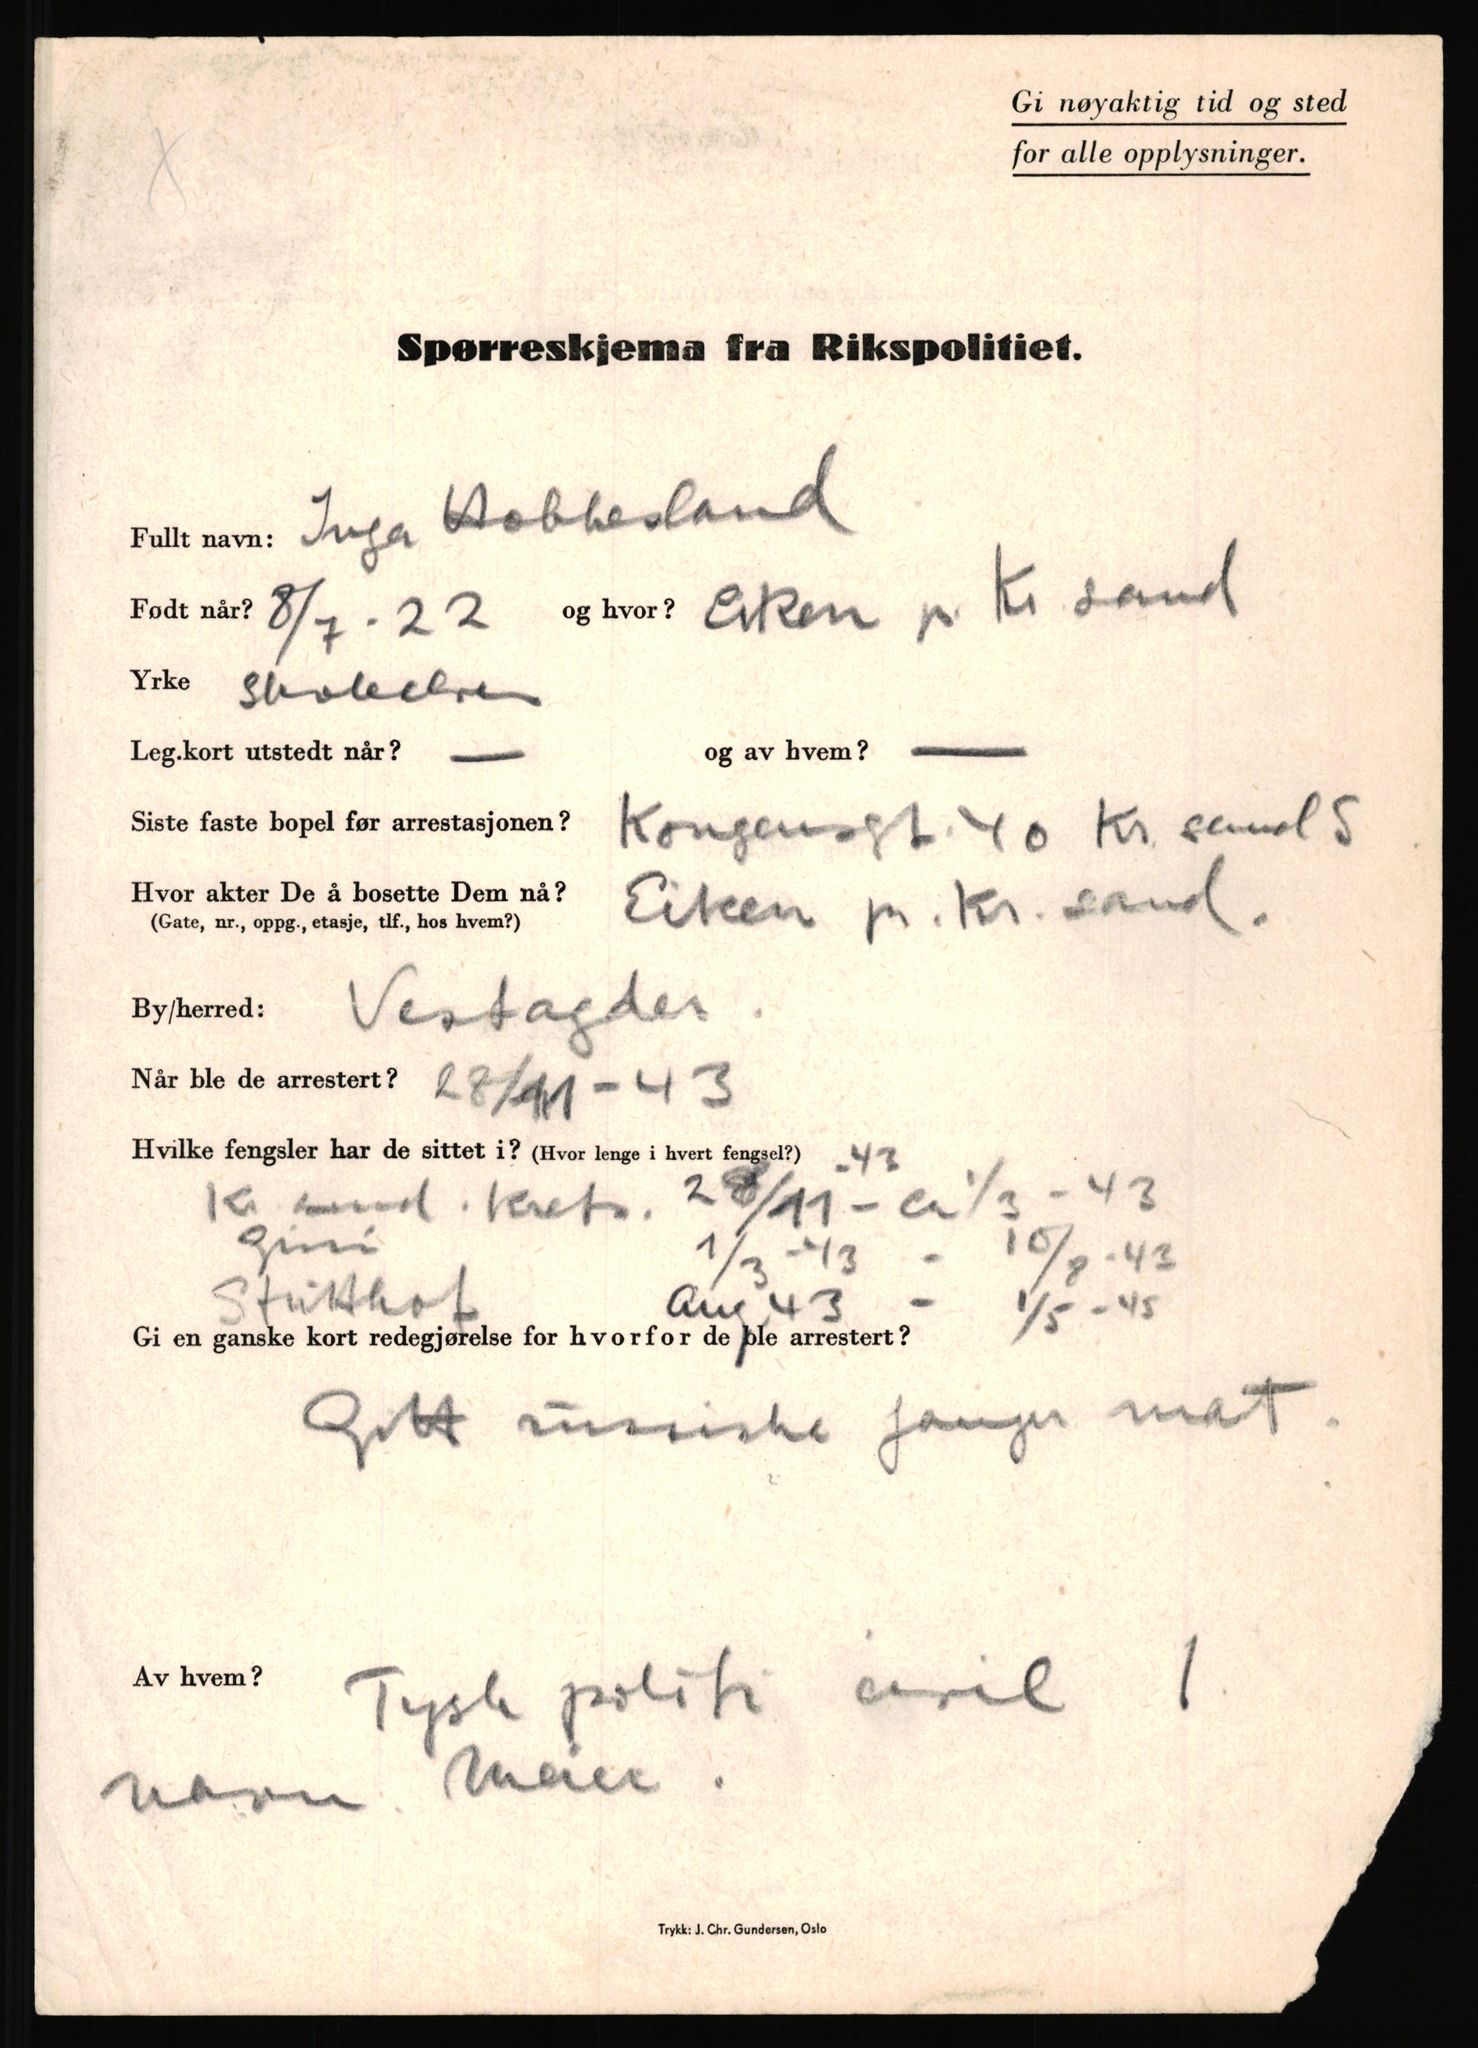 Gi nøyaktig tid og sted
for alle opplysninger.
Spørreskjema fra Rikspolitiet.
Fullt navn: Inga Hobbesland
Født når? 8/7 - 22 og hvor? Eiken pr. Kr. sand
Yrke skoleelev
Leg.kort utstedt når? — og av hvem? —
Siste faste bopel før arrestasjonen? Kongensgt. 40 Kr. sand S
Hvor akter De å bosette Dem nå? Eiken pr. Kr. sand.
(Gate, nr., oppg., etasje, tlf., hos hvem?)
By/herred: Vestagder.
Når ble de arrestert? 28/11 - 43
Hvilke fengsler har de sittet i? (Hvor lenge i hvert fengsel?)
Kr. sand. krets. 28/11 -43 - ca 1/3 - 43
Grini 1/3 - 43 - 10/8 - 43
Stutthof Aug 43 - 1/5 - 45
Gi en ganske kort redegjørelse for hvorfor de ble arrestert?
Gitt russiske fanger mat.
Av hvem? Tysk politi civil 1
navn. Meier.
Trykk: J. Chr. Gundersen, Oslo